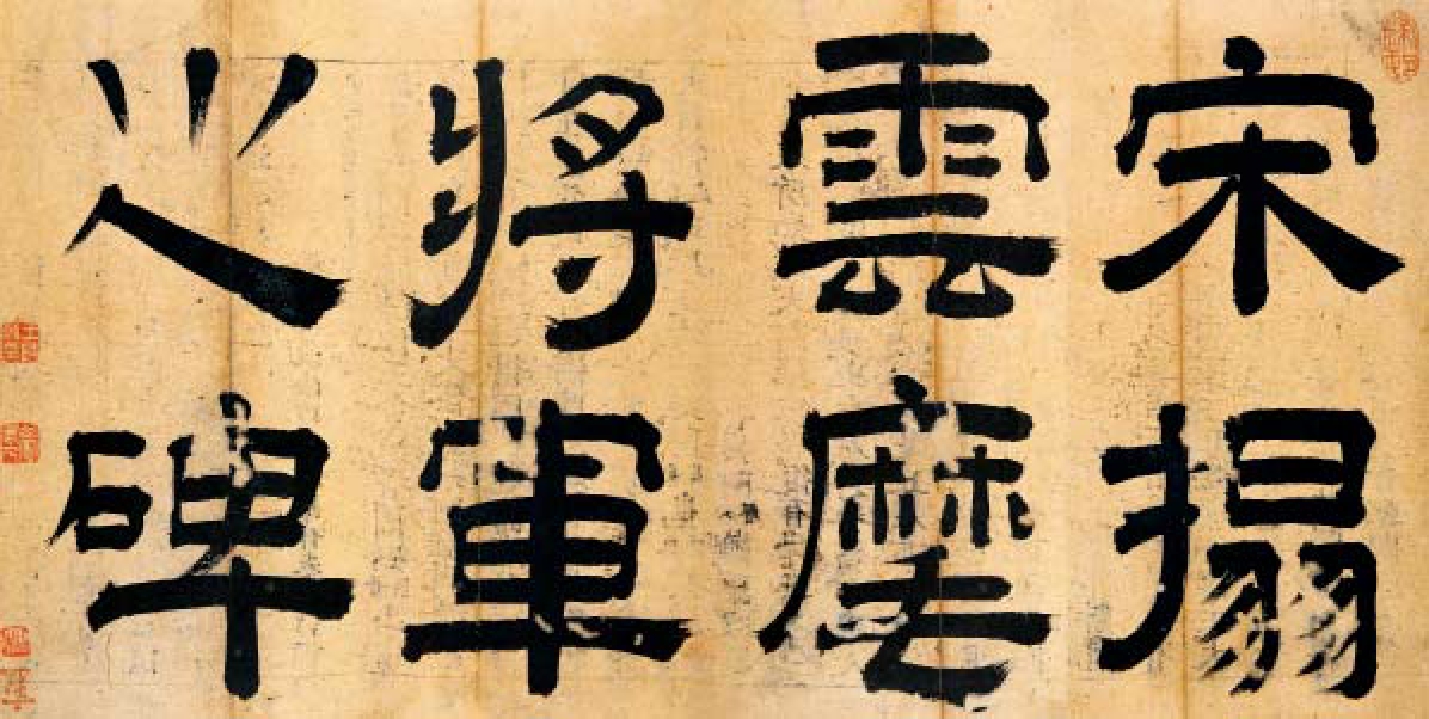 宋搨
雲麾
將軍
之碑